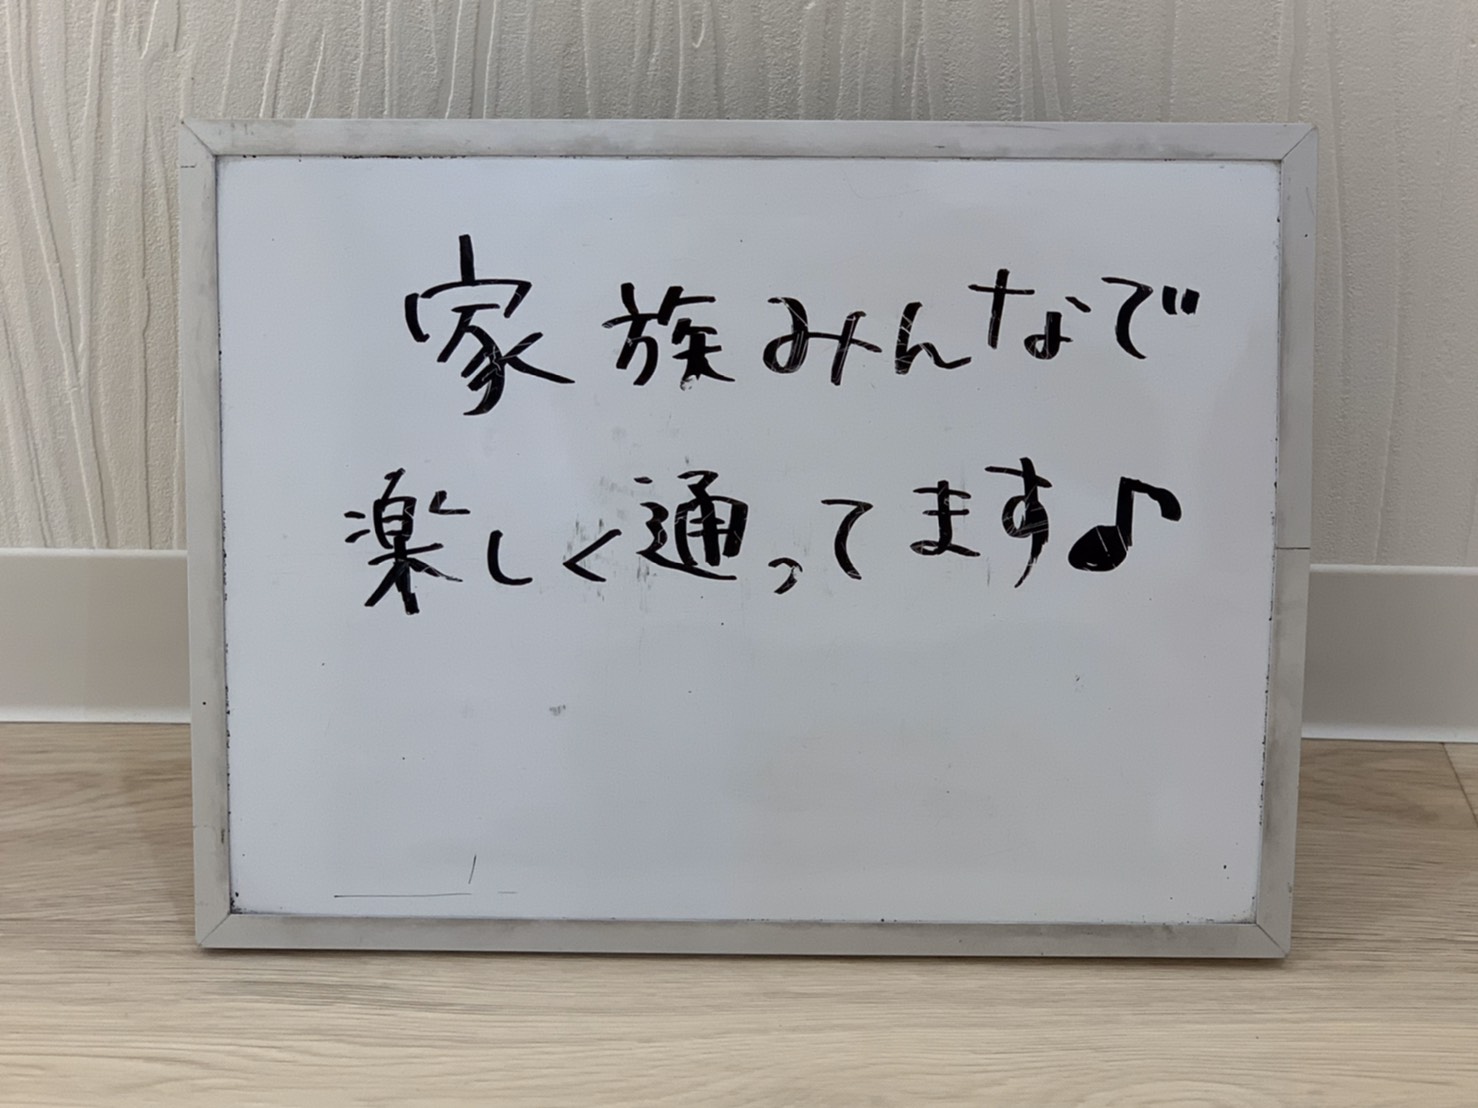 家族みんなで
楽しく通ってます♪